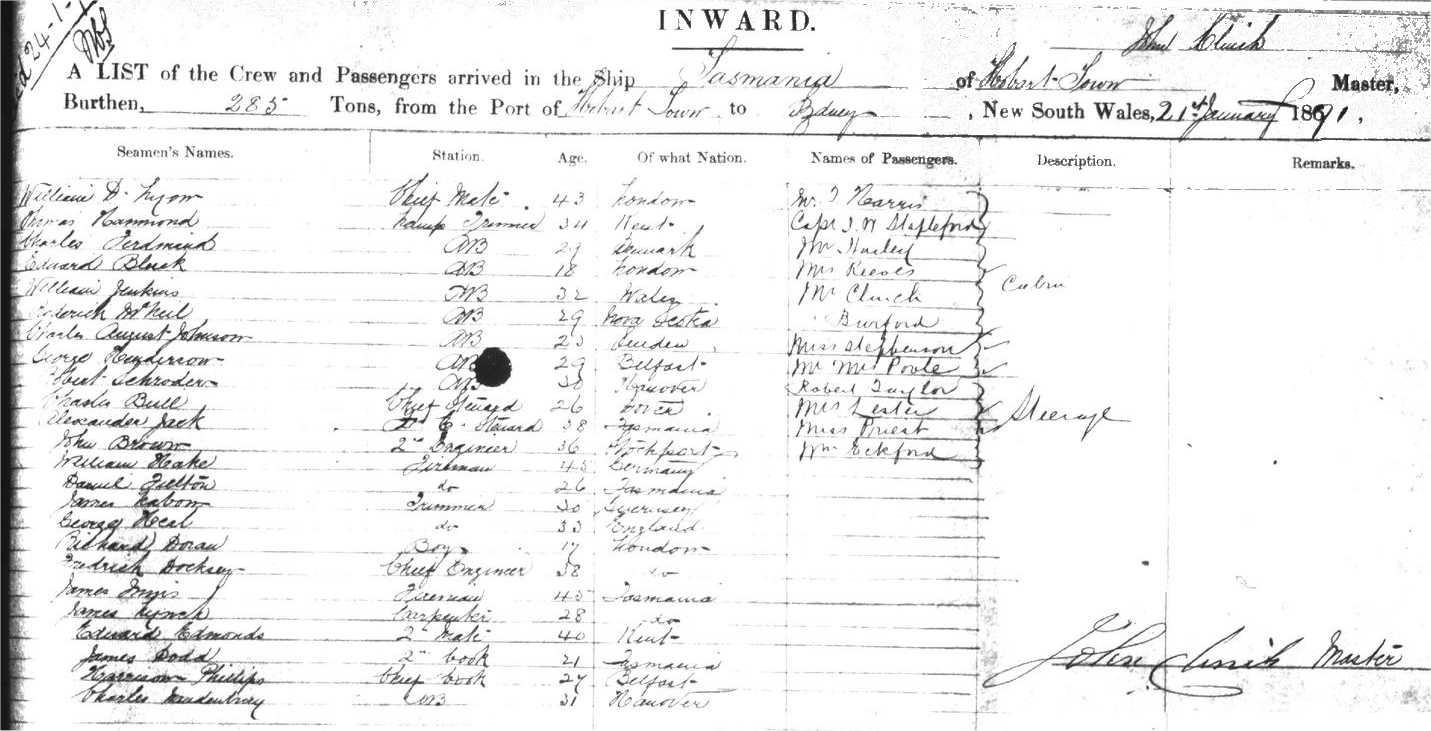 24-1-
INWARD.
John Clinch
A LIST of the Crew and Passengers arrived in the Ship Tasmania of Hobart Town Master,
Burthen, 285 Tons, from the Port of Hobart Town to Sydney, New South Wales, 21st January 1871,
Seamen's Names. Station. Age. Of what Nation. Names of Passengers. Description. Remarks.
William D. Chief Mate 43 London Mr Harris
Thomas Hammond Lamp Trimmer 34 Kent Capt J. W Stapleford
Charles Ferdinand AB 29 Denmark Mr
Edward Black AB 18 London Mrs Reeves Cabin
William Jenkins AB 32 Wales Mr Clinch
Roderick McNeil AB 29 Nova Scotia Burford
Charles August Johnson AB 23 Sweden Miss Stephenson
George Henderson AB 29 Belfast Mr Mrs Poole
Robert Schroder AB 30 Hanover Robert Taylor
Charles Bull Chief Steward 26 Dover Mrs Lester Steerage
Alexander Jack Steward 38 Tasmania Miss Priest
John Brown 2nd Engineer 36 Stockport Wm Eckford
William Heake Fireman 45 Germany
Daniel do 26 Tasmania
James Trimmer 30 Guernsey
George Heal do 33 England
Richard Doran Boy 17 London
Fredrick Docksey Chief Engineer 38 do
James Innis Fireman 45 Tasmania
James Lynch Carpenter 28 do
Edward Edmonds 2nd Mate 40 Kent
James Dodd 2nd Cook 21 Tasmania
Harrison Phillips Chief Cook 27 Belfast
Charles AB 31 Hanover
John Clinch Master